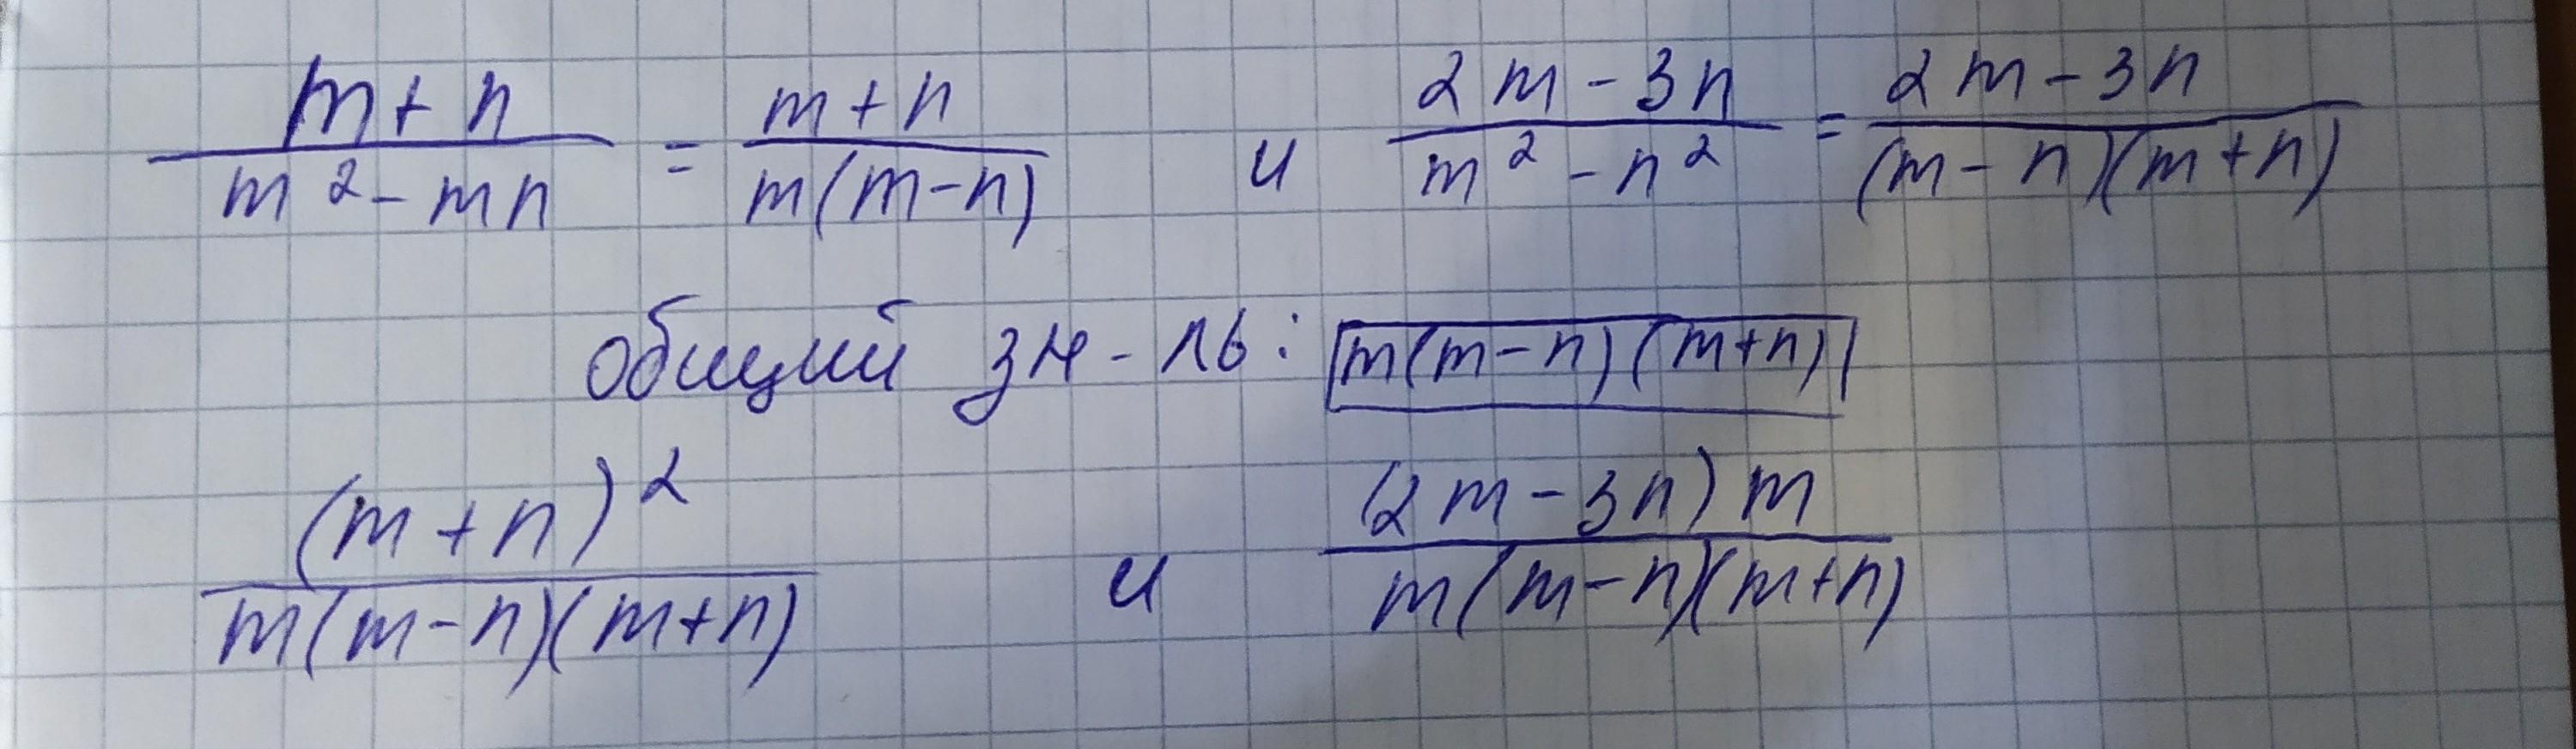 (m+n)/(m²-mn) = (m+n)/(m(m-n)) и (2m-3n)/(m²-n²) = (2m-3n)/((m-n)(m+n))
общий зн-ль: m(m-n)(m+n)
(m+n)²/(m(m-n)(m+n)) и (2m-3n)m/(m(m-n)(m+n))